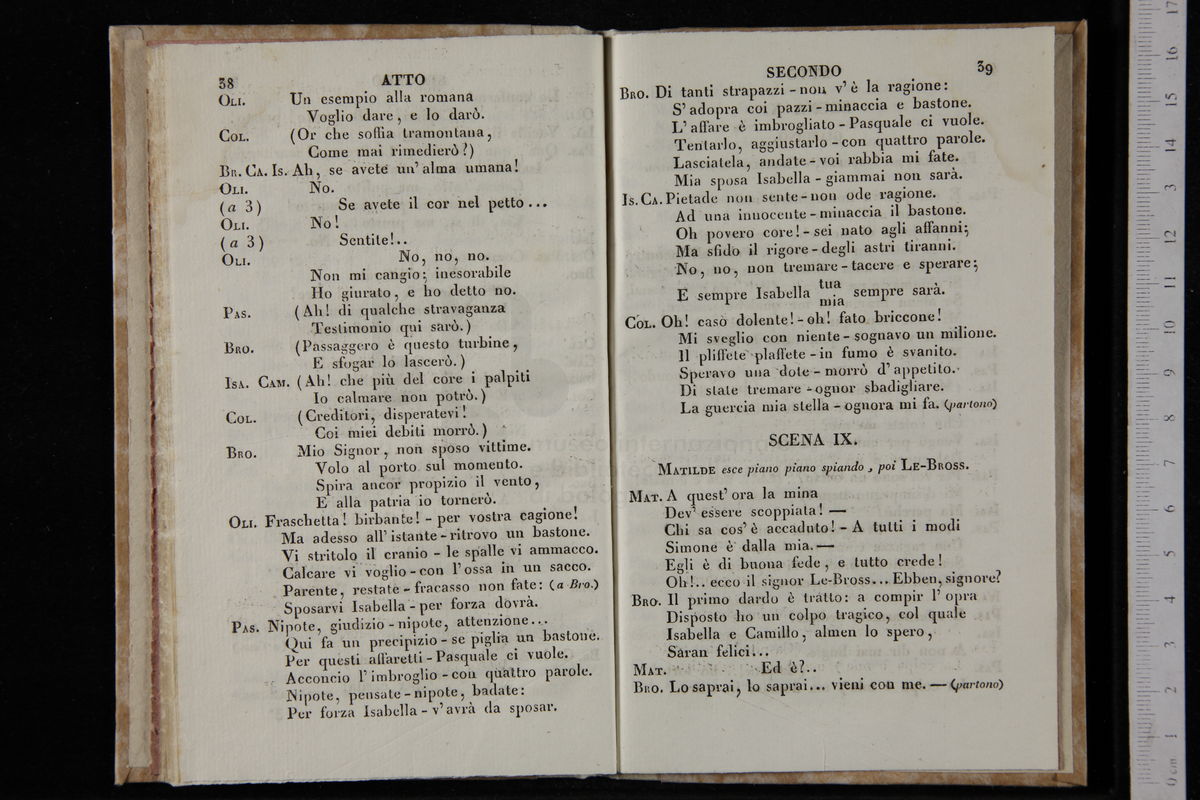 38 ATTO
OLI. Un esempio alla romana
Voglio dare, e lo darò.
COL. (Or che soffia tramontana,
Come mai rimedierò?)
BR. CA. IS. Ah, se avete un' alma umana!
OLI. No.
(a 3) Se avete il cor nel petto...
OLI. No!
(a 3) Sentite!..
OLI. No, no, no.
Non mi cangio; inesorabile
Ho giurato, e ho detto no.
PAS. (Ah! di qualche stravaganza
Testimonio qui sarò.)
BRO. (Passaggero è questo turbine,
E sfogar lo lascerò.)
ISA. CAM. (Ah! che più del core i palpiti
Io calmare non potrò.)
COL. (Creditori, disperatevi!
Coi miei debiti morrò.)
BRO. Mio Signor, non sposo vittime.
Volo al porto sul momento.
Spira ancor propizio il vento,
E alla patria io tornerò.
OLI. Fraschetta! birbante! - per vostra cagione!
Ma adesso all' istante - ritrovo un bastone.
Vi stritolo il cranio - le spalle vi ammacco.
Calcare vi voglio - con l' ossa in un sacco.
Parente, restate - fracasso non fate: (a Bro.)
Sposarvi Isabella - per forza dovrà.
PAS. Nipote, giudizio - nipote, attenzione...
Qui fa un precipizio - se piglia un bastone.
Per questi affaretti - Pasquale ci vuole.
Acconcio l' imbroglio - con quattro parole.
Nipote, pensate - nipote, badate:
Per forza Isabella - v' avrà da sposar.
SECONDO 39
BRO. Di tanti strapazzi - non v' è la ragione:
S' adopra coi pazzi - minaccia e bastone.
L' affare è imbrogliato - Pasquale ci vuole.
Tentarlo, aggiustarlo - con quattro parole.
Lasciatela, andate - voi rabbia mi fate.
Mia sposa Isabella - giammai non sarà.
IS. CA. Pietade non sente - non ode ragione.
Ad una innocente - minaccia il bastone.
Oh povero core! - sei nato agli affanni;
Ma sfido il rigore - degli astri tiranni.
No, no, non tremare - tacere e sperare;
E sempre Isabella tua sempre sarà.
mia
COL. Oh! caso dolente! - oh! fato briccone!
Mi sveglio con niente - sognavo un milione.
Il pliffete plaffete - in fumo è svanito.
Speravo una dote - morrò d' appetito.
Di state tremare - ognor sbadigliare.
La guercia mia stella - ognora mi fa. (partono)
SCENA IX.
MATILDE esce piano piano spiando, poi LE-BROSS.
MAT. A quest' ora la mina
Dev' essere scoppiata! —
Chi sa cos' è accaduto! - A tutti i modi
Simone è dalla mia. —
Egli è di buona fede, e tutto crede!
Oh!.. ecco il signor Le-Bross... Ebben, signore?
BRO. Il primo dardo è tratto: a compir l' opra
Disposto ho un colpo tragico, col quale
Isabella e Camillo, almen lo spero,
Saran felici...
MAT. Ed è?..
BRO. Lo saprai, lo saprai... vieni con me. — (partono)